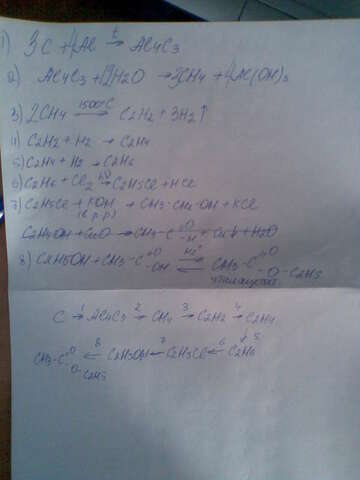 1) 3C + 4Al →t Al4C3
2) Al4C3 + 12H2O → 3CH4 + 4Al(OH)3
3) 2CH4 →1500°C C2H2 + 3H2↑
4) C2H2 + H2 → C2H4
5) C2H4 + H2 → C2H6
6) C2H6 + Cl2 →hν C2H5Cl + HCl
7) C2H5Cl + KOH → CH3-CH2-OH + KCl
(в.р-р)
C2H5OH + CuO → CH3-C=O -H + Cu↓ + H2O
8) C2H5OH + CH3-C=O -OH ⇌H+ CH3-C=O -O-C2H5
C →1 Al4C3 →2 CH4 →3 C2H2 →4 C2H4
↓5
CH3-C=O O-C2H5 ←8 C2H5OH ←7 C2H5Cl ←6 C2H6